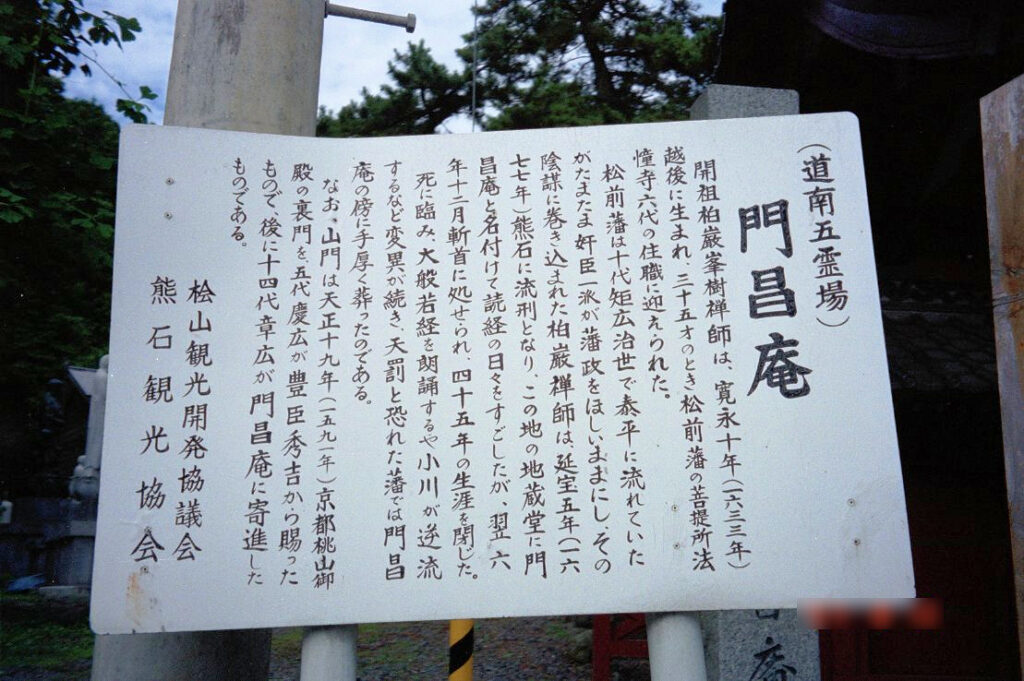 （道南五霊場）
門昌庵
開祖柏巌峯樹禅師は、寛永十年（一六三三年）
越後に生まれ、三十五才のとき松前藩の菩提所法
憧寺六代の住職に迎えられた。
松前藩は十代矩広治世で泰平に流れていた
がたまたま奸臣一派が藩政をほしいままにし、その
陰謀に巻き込まれた柏巌禅師は、延宝五年（一六
七七年）熊石に流刑となり、この地の地蔵堂に門
昌庵と名付けて読経の日々をすごしたが、翌六
年十二月斬首に処せられ、四十五年の生涯を閉じた。
死に臨み、大般若経を朗誦するや小川が逆流
するなど変異が続き、天罰と恐れた藩では門昌
庵の傍に手厚く葬ったのである。
なお、山門は天正十九年（一五九一年）京都桃山御
殿の裏門を、五代慶広が豊臣秀吉から賜った
もので、後に十四代章広が門昌庵に寄進した
ものである。
桧山観光開発協議会
熊石観光協会
昌庵